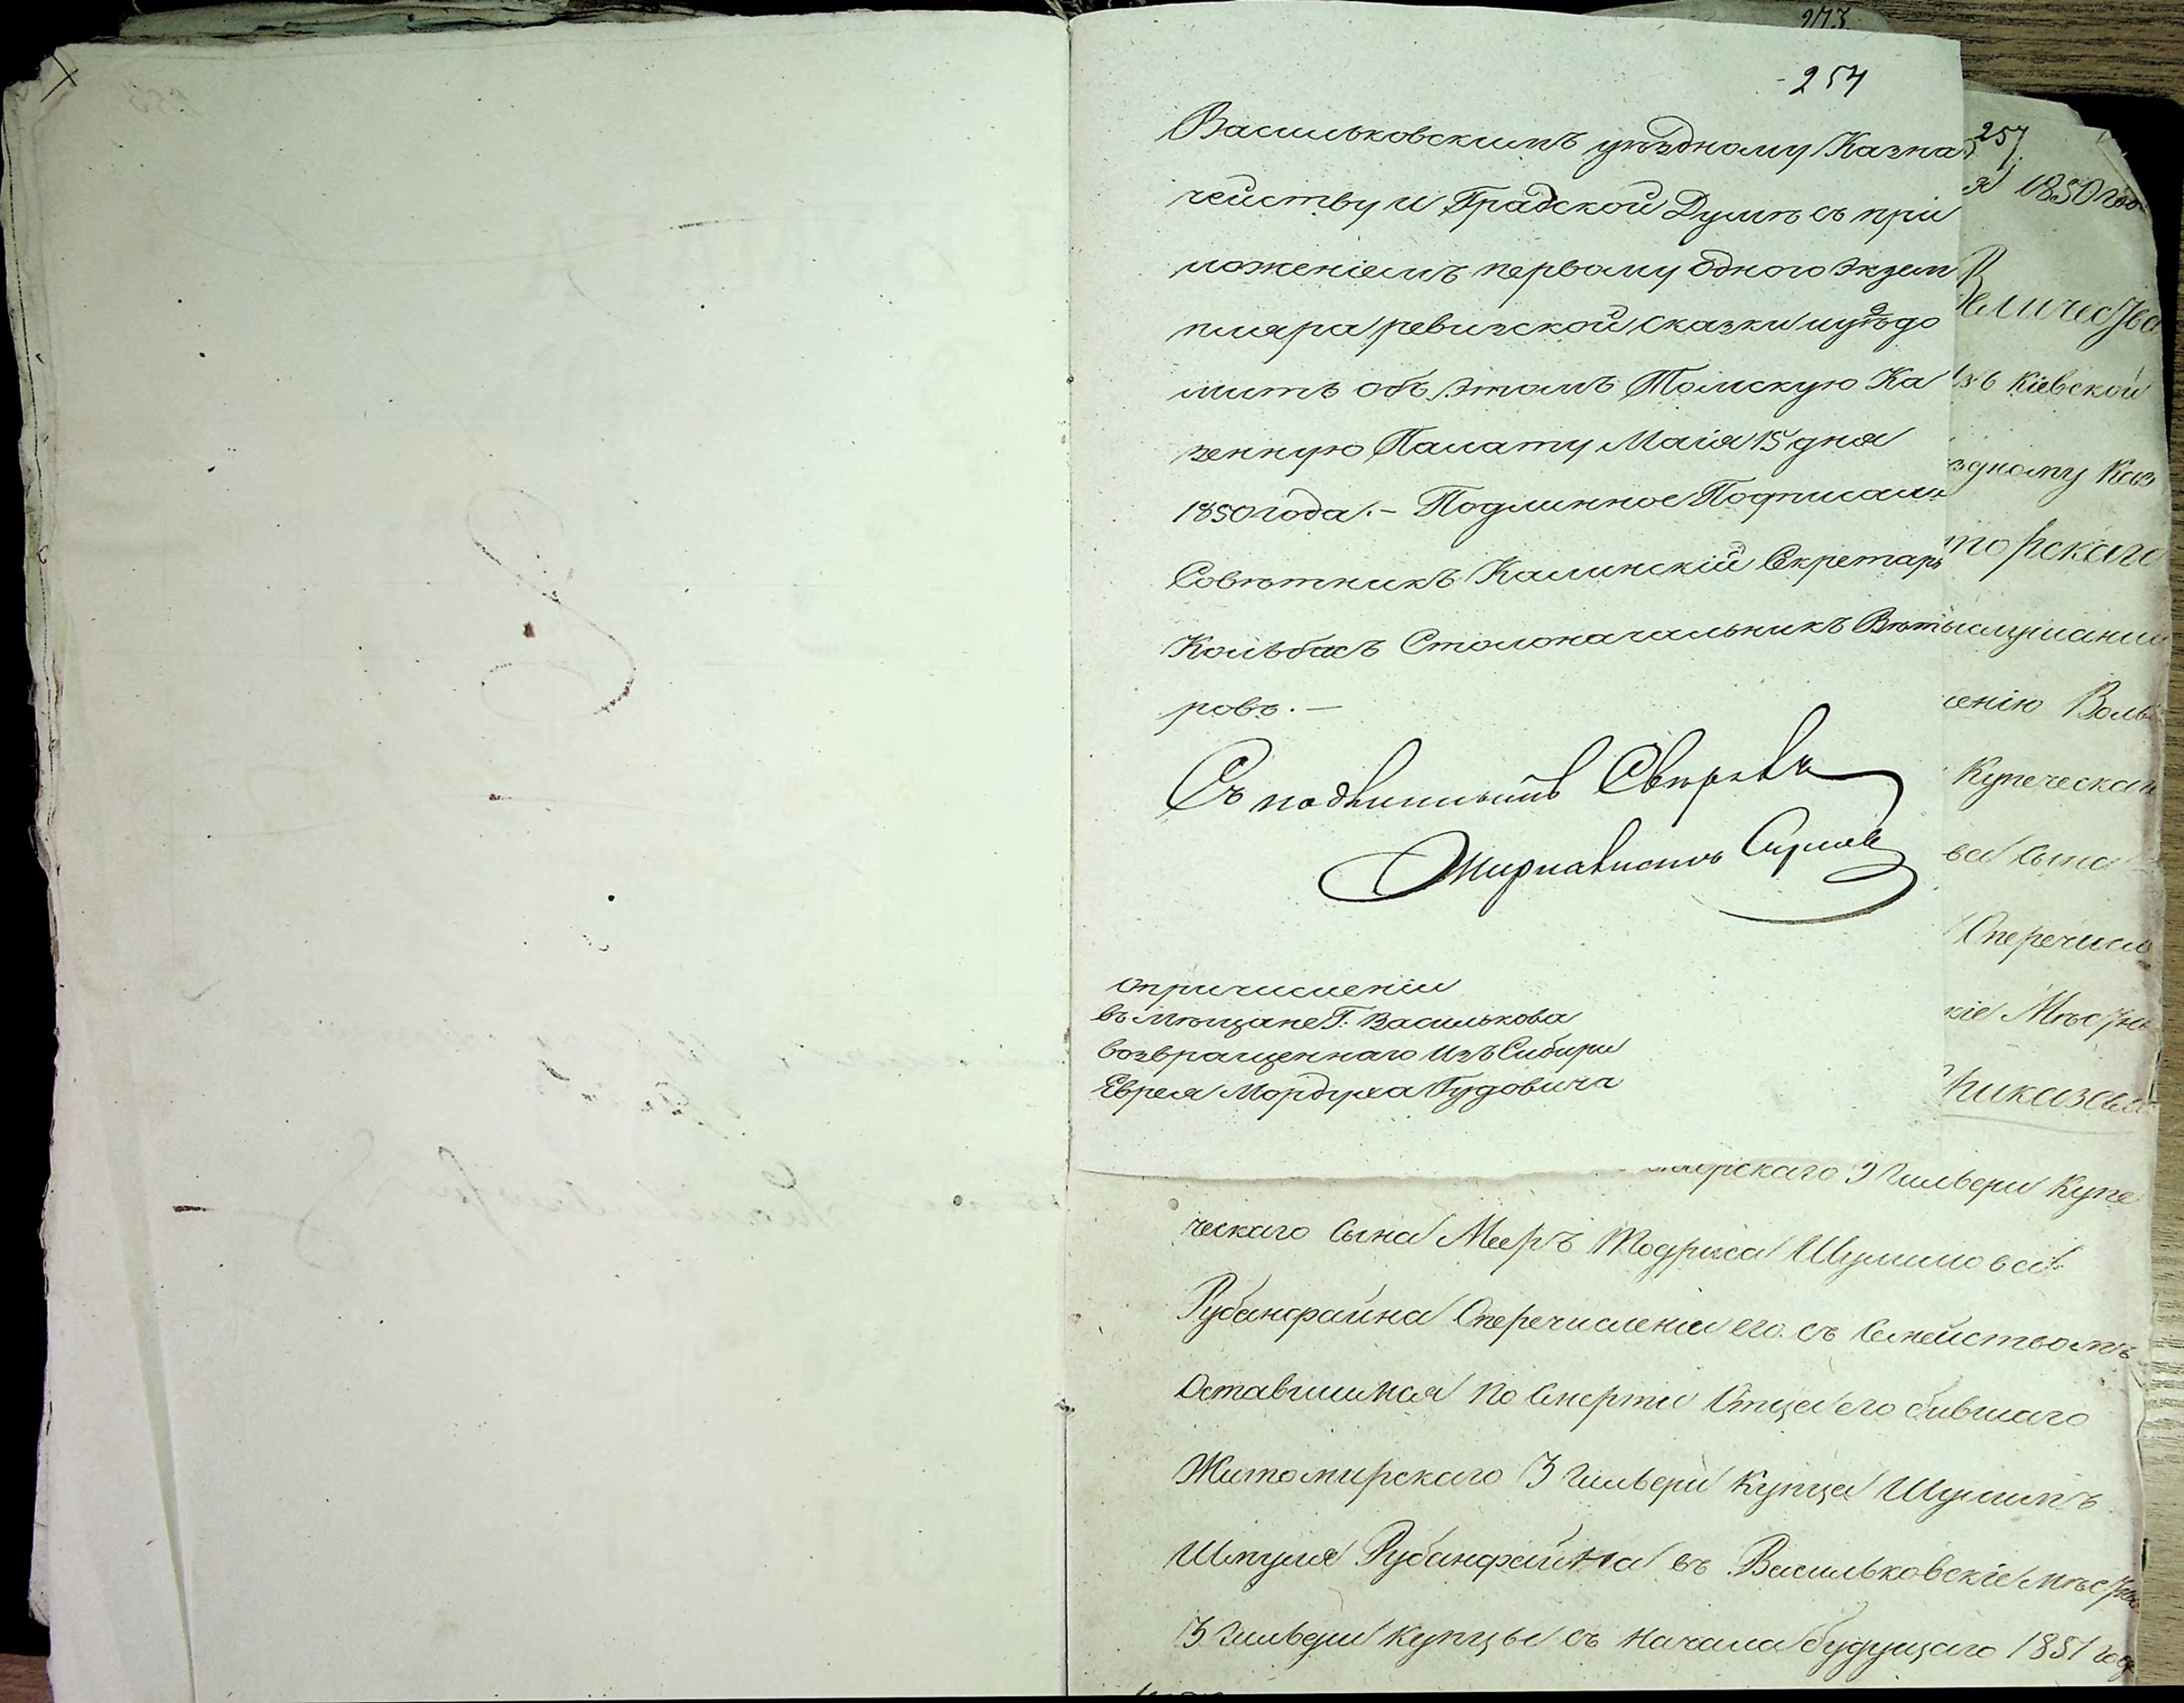 273
254
Васильковскимъ уѣздному Казна
чейству и Градской Думѣ съ при
ложеніемъ первому одного экзем
пляра ревизской сказки и увѣдо
мить объ этомъ Томскую Ка
зенную Палату Маія 15 дня
1850 года. – Подлинное Подписали
Совѣтникъ Калинскій Секретарь
Кольбасъ Столоначальникъ Вѣт
ровъ. –
Съ подлиннымъ Свѣрялъ
Журналистъ
опричисленіи
въ Мѣщане Г. Василькова
возвращеннаго изъ Сибири
Еврея Мордуха Гудовича
257
1850 го
Величества
Кіевской
ѣздному Каз
торскаго
ыслушании
енію
Купеческаго
ва сына
Оперечисле
кіе Мѣстн
Приказали
3 Гильдіи Купе
ческаго Сына Меерѣ Тодриса Шулимова
Рубанфайна Оперечисленіи его съ Семействомъ
Оставшимся по Смерти Отца его бывшаго
Житомирскаго 3 Гильдіи Купца Шулимъ
Шмуля Рубанфайна въ Васильковскіе Мѣстн
3 Гильдіи Купцы съ Начала будущаго 1851 год